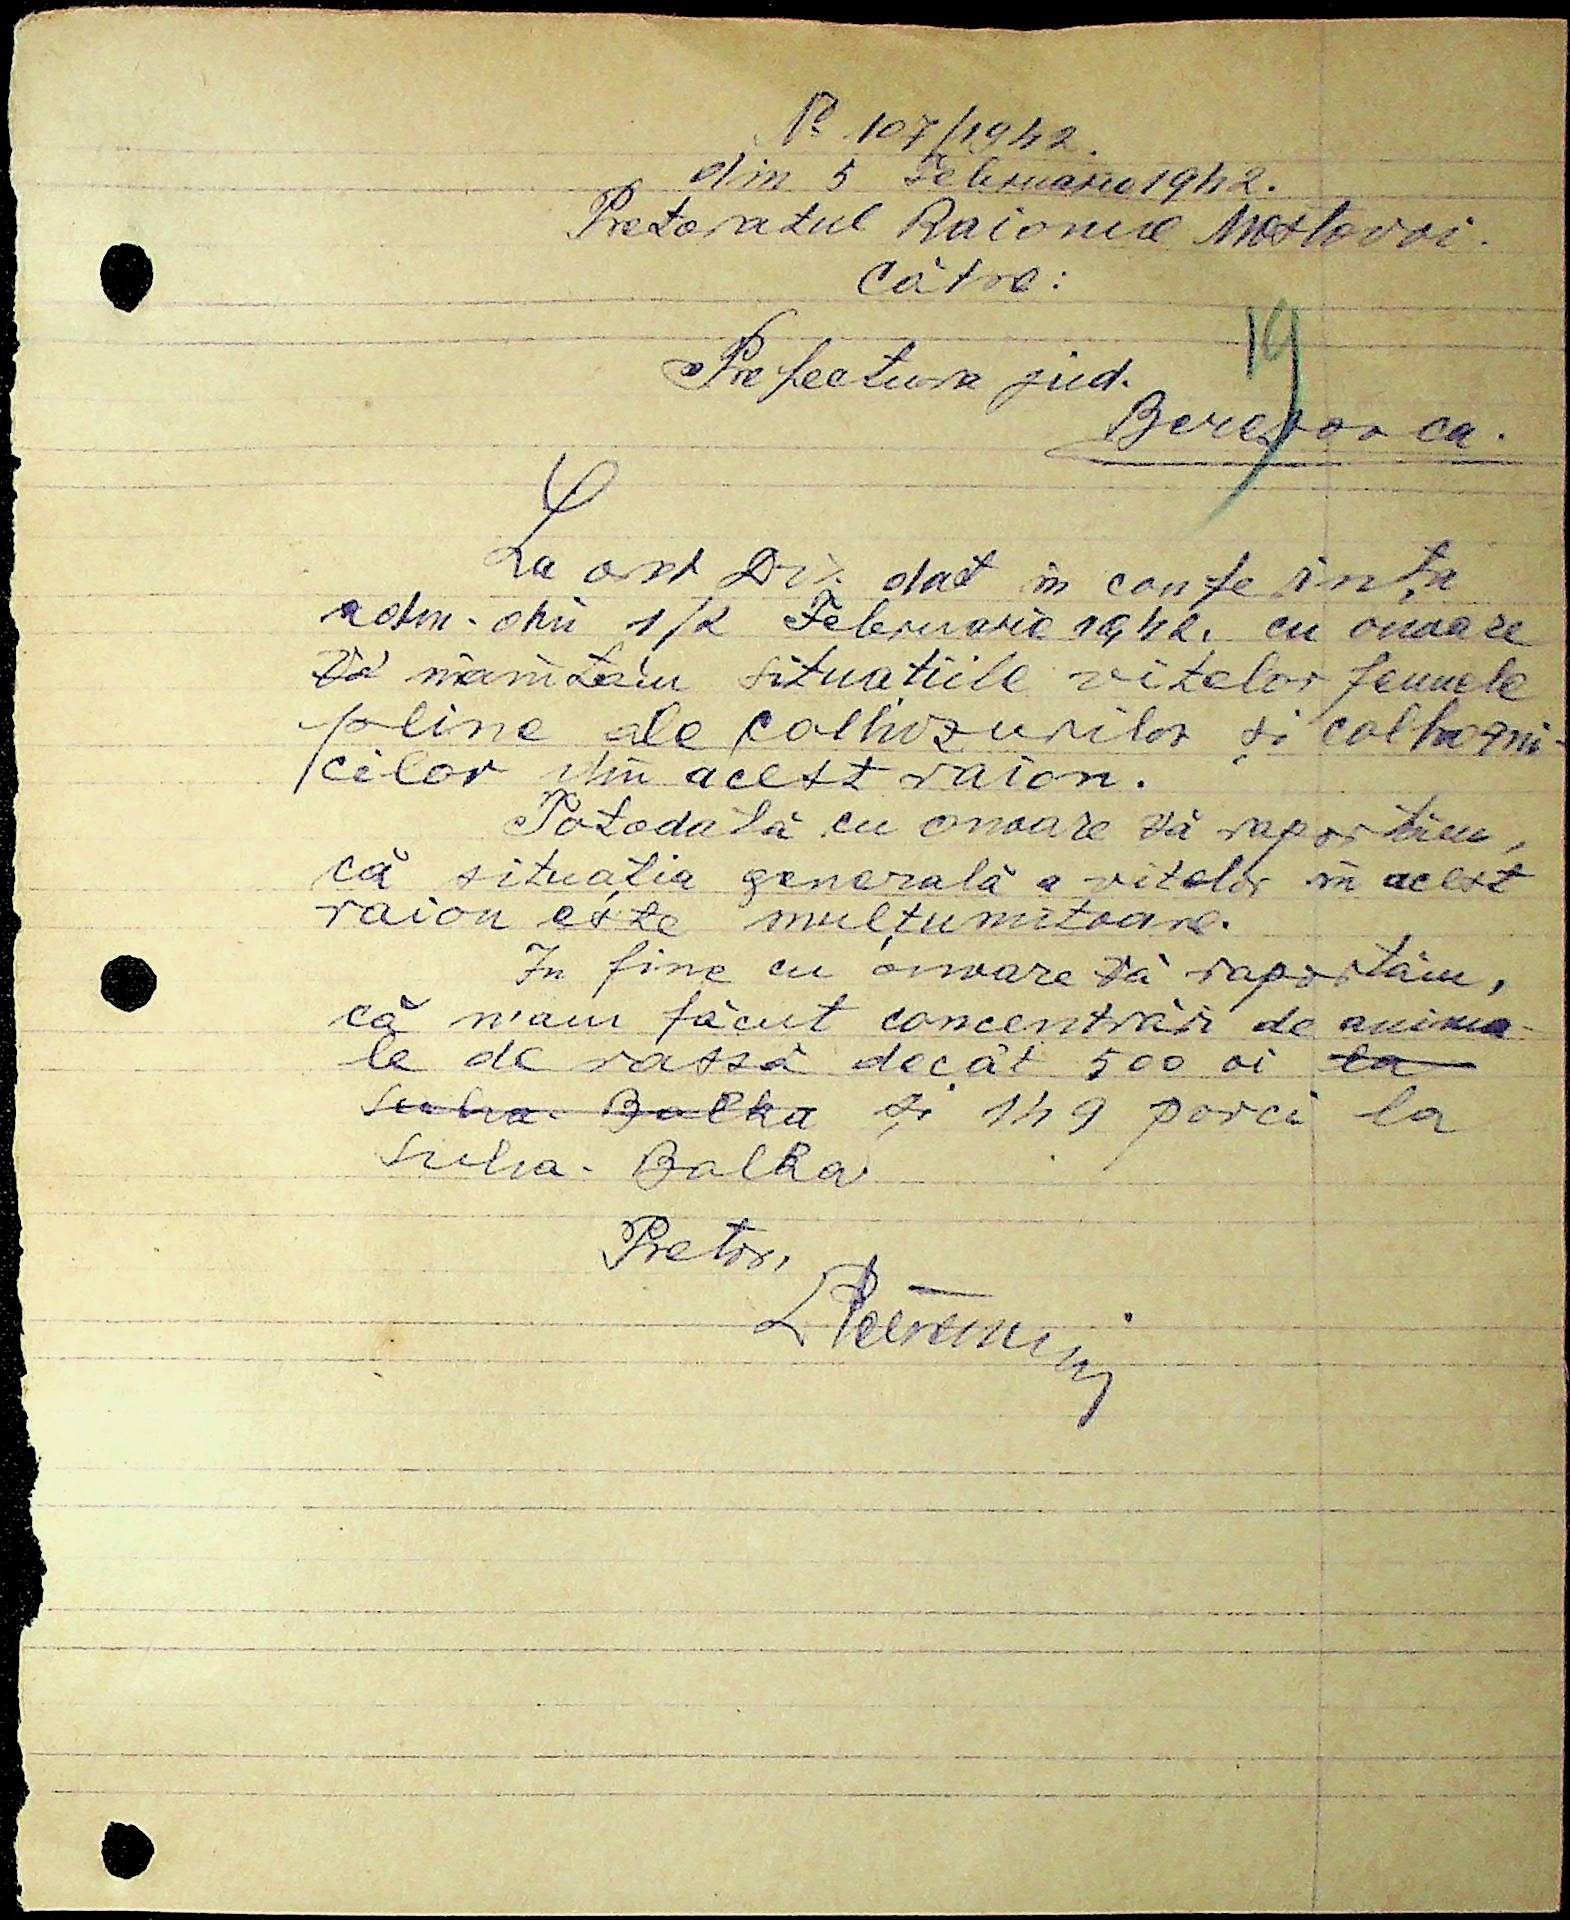 No 107/1942.
din 5 Februarie 1942.
Pretoratul Raionul Mostovoi.
Către:
19
Prefectura jud.
Berezovca.
La ord. dat in conferința
adm. din 1/2 Februarie 1942. cu onoare
Vă înnintăm situatiile vitelor femele
pline ale colhozurilor și colhozni-
cilor din acest raion.
Totodată cu onoare Vă raportăm,
că situația generală a vitelor in acest
raion este mulțumitoare.
In fine cu onoare Vă raportăm,
că n'am făcut concentrări de anima-
le de rassă decât 500 oi la
Suha-Balka și 149 porci la
Suha-Balka
Pretor,